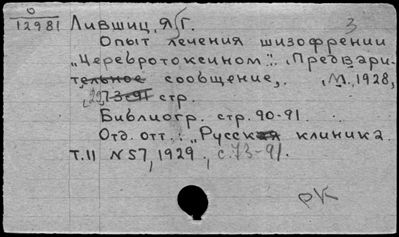 О
12981
Лившиц, Я. Г.
3
Опыт лечения шизофрении
„Церевротоксином". Предвари-
тельное сообщение, М., 1928,
73-91 стр.
Библиогр. стр. 90-91.
Отд. отт.: „Русская клиника
т. 11 N 57, 1929., с. 73-91.
ОК